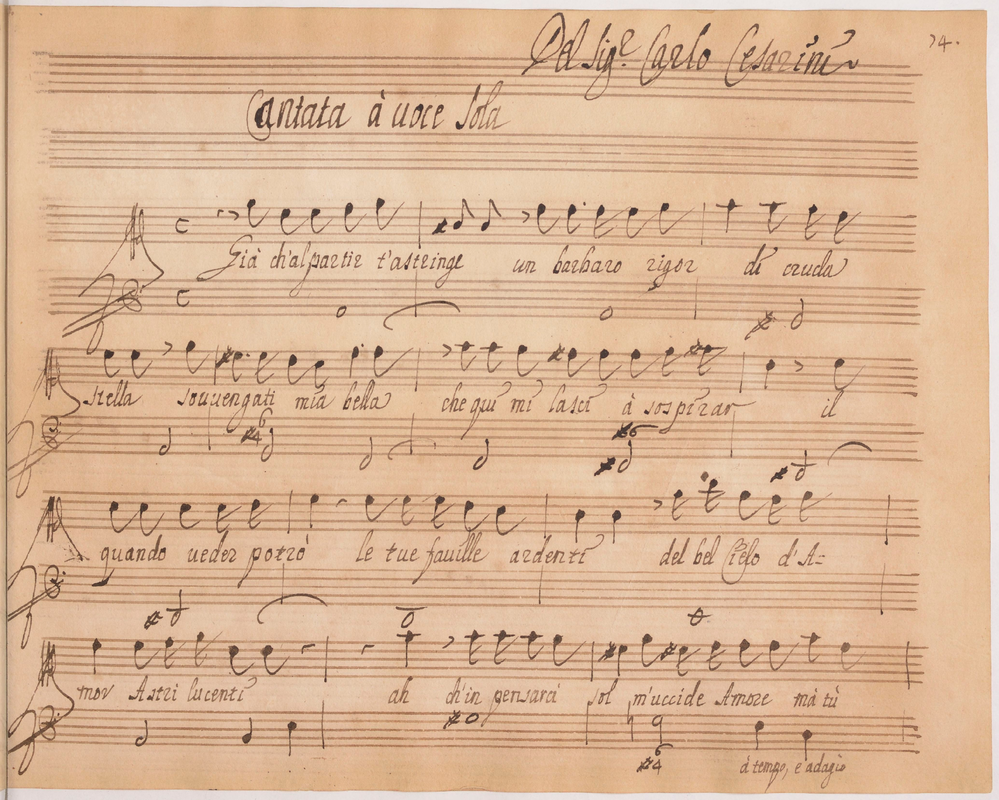 Del Sig.r Carlo Cesarini
74.
Cantata à uoce sola
Già ch'al partir t'astringe un barbaro rigor di cruda
stella souuengati mia bella che qui mi lasci à sospirar il
quando ueder potrò le tue fauille ardenti del bel Cielo d'A=
mor Astri lucenti ah ch'in pensarci sol m'uccide Amore mà tù
à tempo, e adagio